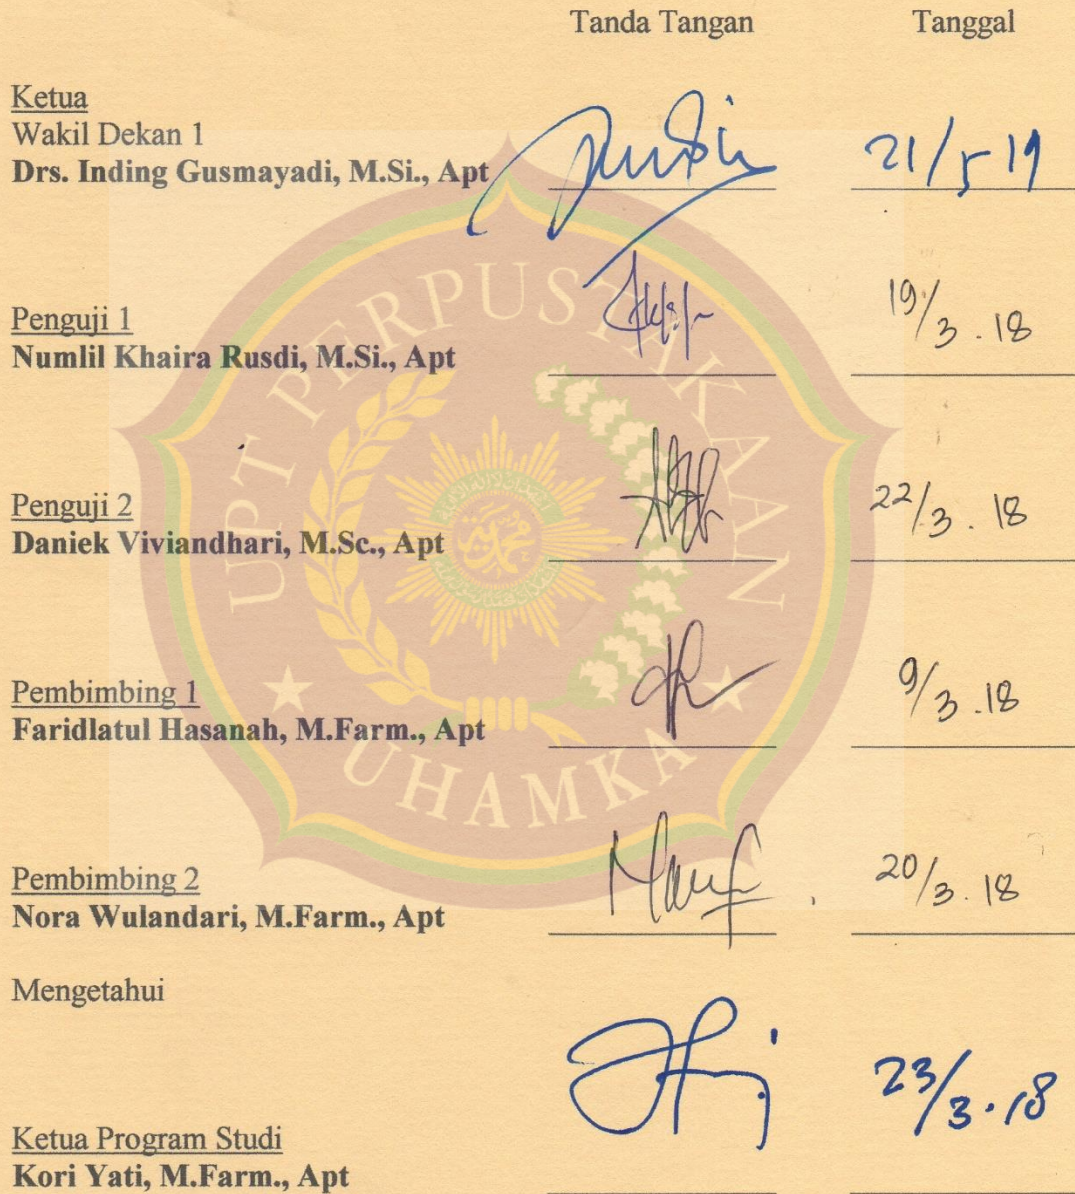 Tanda Tangan Tanggal
Ketua
Wakil Dekan 1
Drs. Inding Gusmayadi, M.Si., Apt 21/5 19
Penguji 1 19/3 . 18
Numlil Khaira Rusdi, M.Si., Apt
Penguji 2 22/3 . 18
Daniek Viviandhari, M.Sc., Apt
Pembimbing 1 9/3 .18
Faridlatul Hasanah, M.Farm., Apt
Pembimbing 2 20/3 . 18
Nora Wulandari, M.Farm., Apt
Mengetahui
23/3 . 18
Ketua Program Studi
Kori Yati, M.Farm., Apt
UPT PERPUSTAKAAN
UHAMKA